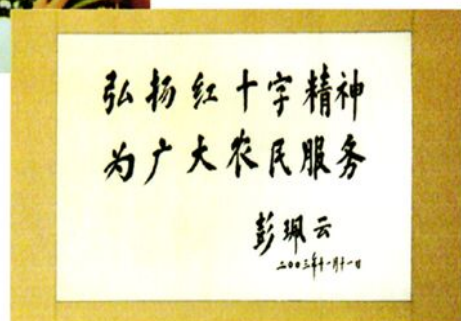 弘扬红十字精神
为广大农民服务
彭珮云
二〇〇三年十一月十一日